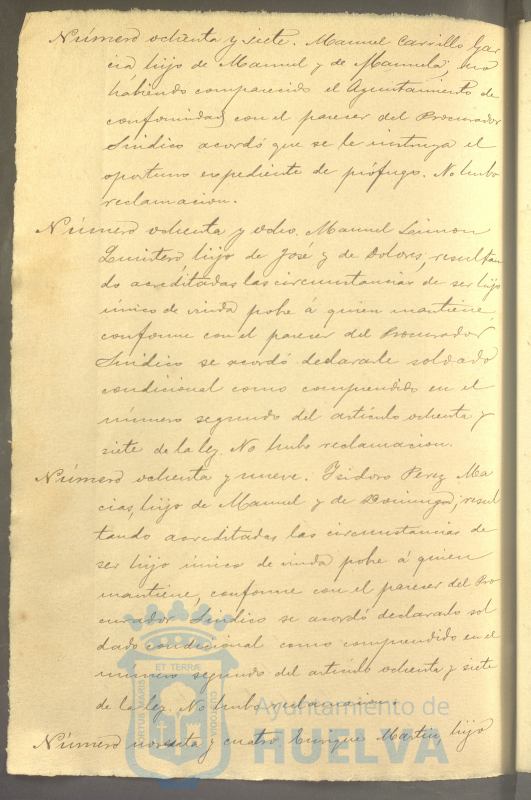 Número ochenta y siete. Manuel Carrillo Gar
cia hijo de Manuel y de Manuela; no
habiendo comparecido el Ayuntamiento de
conformidad con el parecer del Procurador
Sindico acordó que se le instruya el
oportuno expediente de prófugo. No hubo
reclamacion.
Número ochenta y ocho. Manuel Limon
Quintero hijo de José y de Dolores, resultan
do acreditadas las circunstancias de ser hijo
único de viuda pobre á quien mantiene,
conforme con el parecer del Procurador
Sindico se acordó declararle soldado
condicional como comprendido en el
número segundo del artículo ochenta y
siete de la ley. No hubo reclamacion.
Número ochenta y nueve. Isidoro Perez Ma
cias, hijo de Manuel y de Dominga; resul
tando acreditadas las circunstancias de
ser hijo único de viuda pobre á quien
mantiene, conforme con el parecer del Pro
curador Sindico se acordó declararlo sol
dado condicional como comprendido en el
número segundo del artículo ochenta y siete
de la ley. No hubo reclamacion.
Número noventa y cuatro. Enrique Martin, hijo
ET TERRÆ
PORTUS MARIS
CUSTODIA
Ayuntamiento de
HUELVA